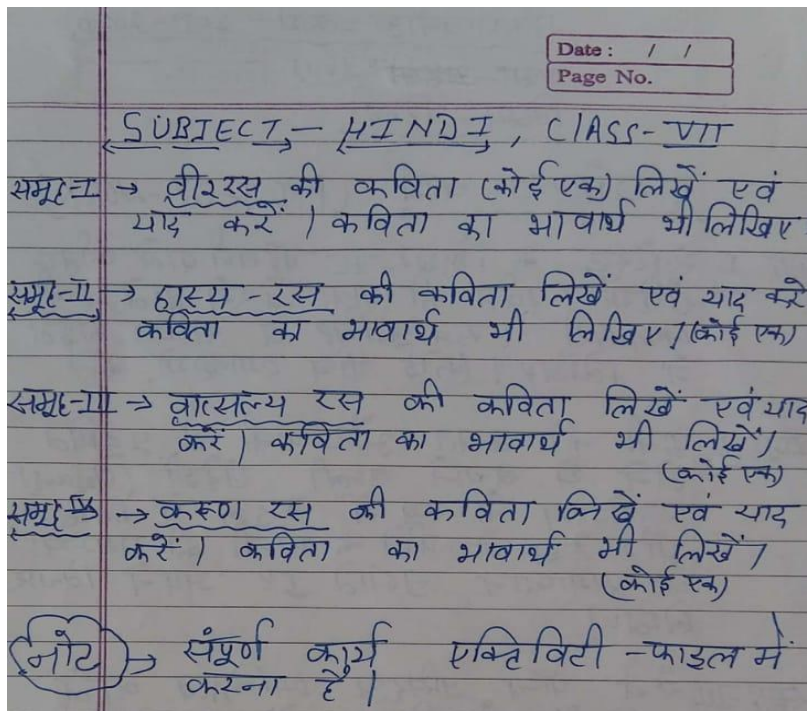 Date : / /
Page No.
SUBJECT - HINDI, CLASS - VII
समूह-I → वीर रस की कविता (कोई एक) लिखें एवं
याद करें। कविता का भावार्थ भी लिखिए
समूह-II → हास्य - रस की कविता लिखें एवं याद करे
कविता का भावार्थ भी लिखिए। (कोई एक)
समूह-III → वात्सल्य रस की कविता लिखें एवं याद
करें। कविता का भावार्थ भी लिखें।
(कोई एक)
समूह-IV → करुण रस की कविता लिखें एवं याद
करें। कविता का भावार्थ भी लिखें।
(कोई एक)
नोट → संपूर्ण कार्य एक्टिविटी - फाइल में
करना है।